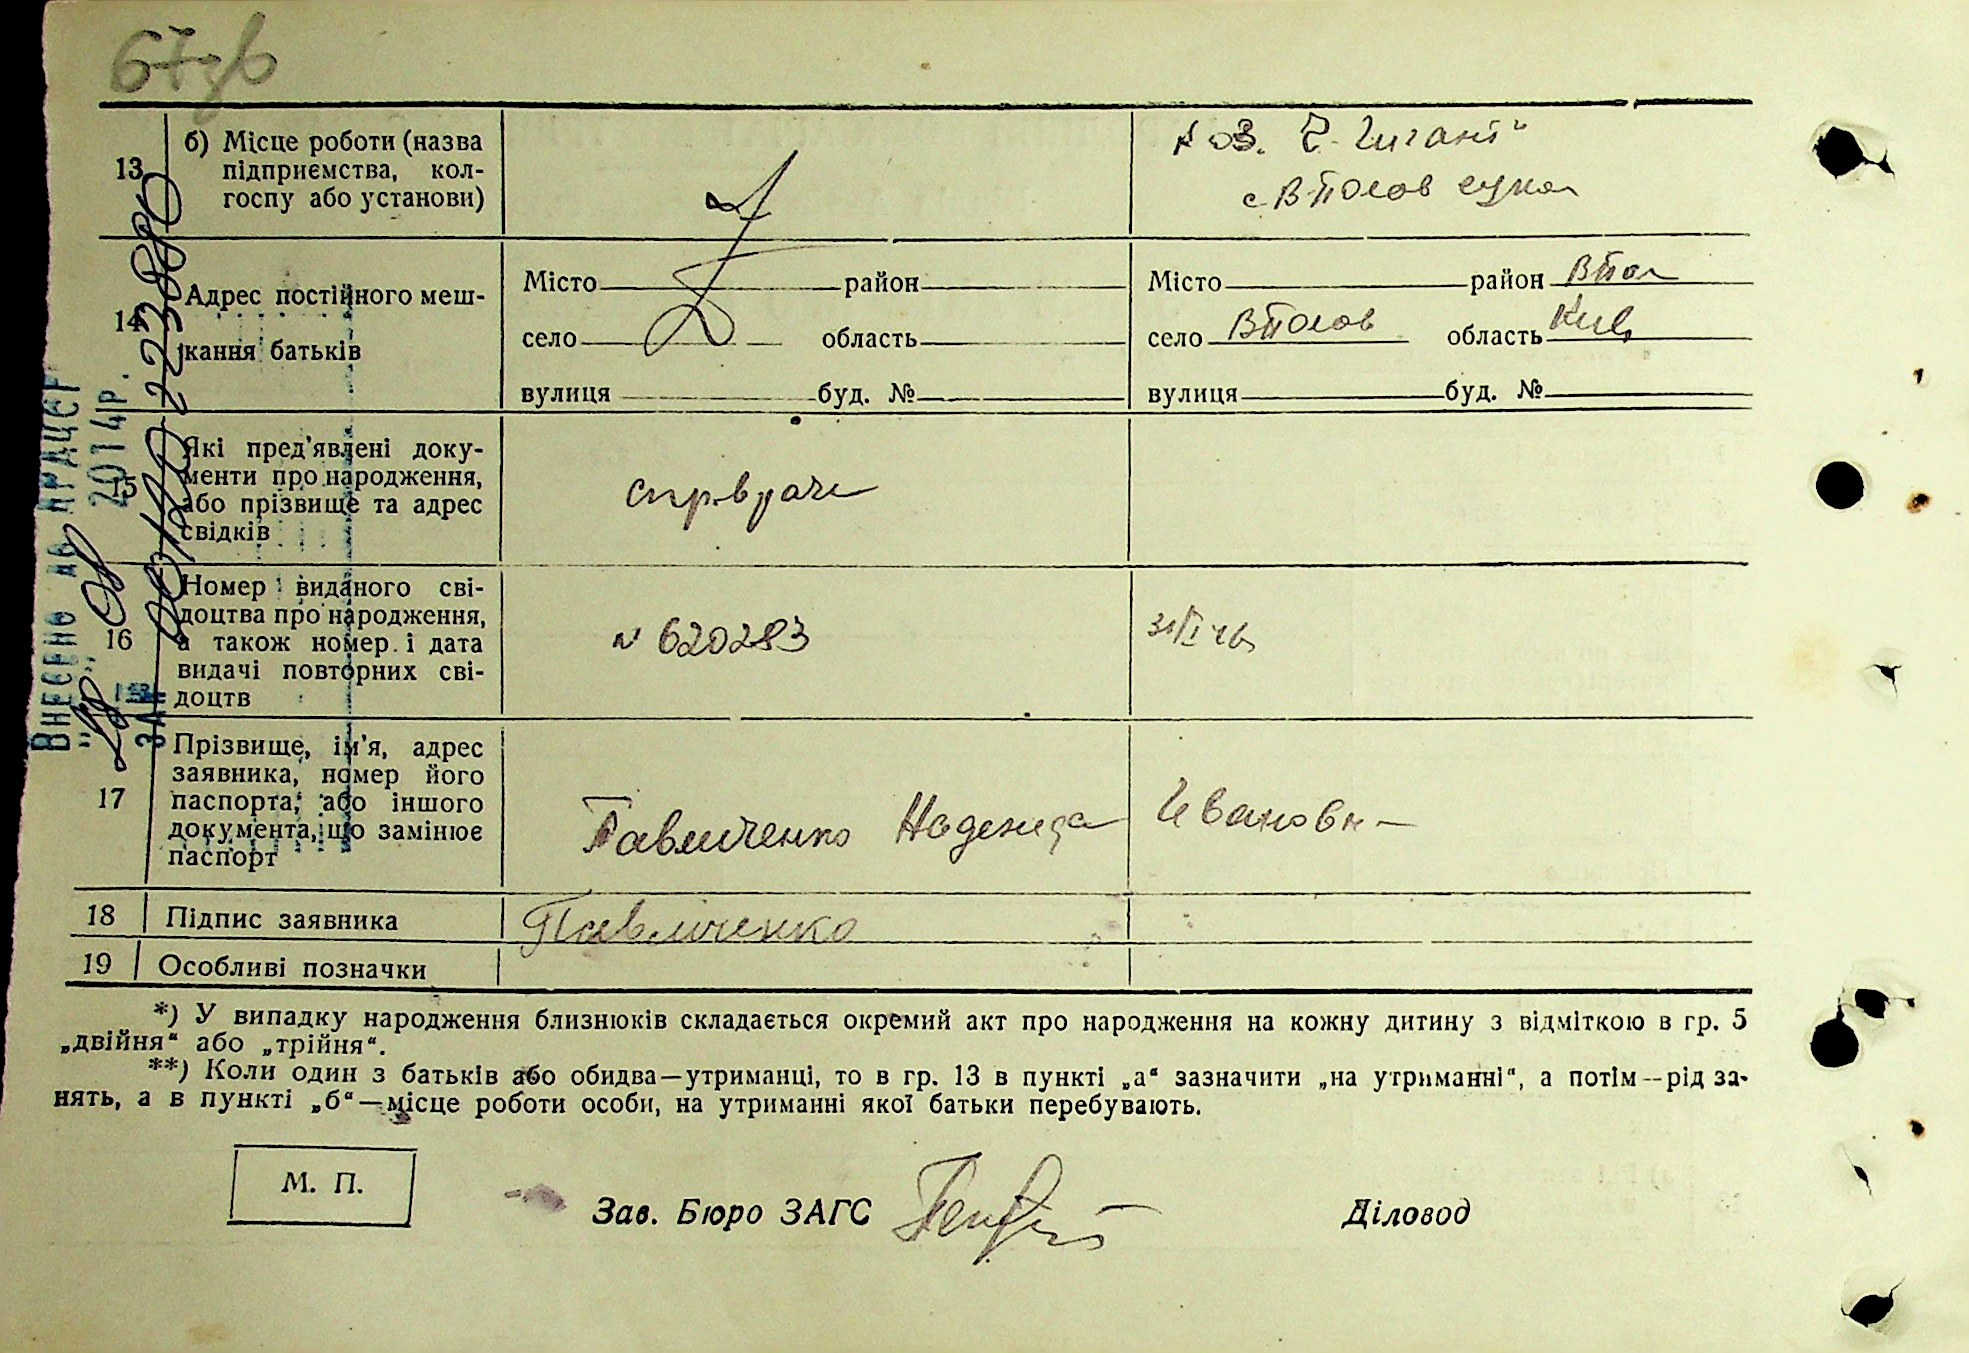 67зв
13
б) Місце роботи (назва
підприємства, кол-
госпу або установи)
с. В-Полов
14
Адрес постійного меш-
кання батьків
Місто район
село область
вулиця буд. №
Місто район ВПол
село ВПолов область Київ
вулиця буд. №
15
Які пред'явлені доку-
менти про народження,
або прізвище та адрес
свідків
спр. врача
16
Номер виданого сві-
доцтва про народження,
а також номер і дата
видачі повторних сві-
доцтв
N 620283
17
Прізвище, ім'я, адрес
заявника, номер його
паспорта, або іншого
документа, що замінює
паспорт
Павличенко Надежда Ивановн
18 Підпис заявника
Павличенко
19 Особливі позначки
*) У випадку народження близнюків складається окремий акт про народження на кожну дитину з відміткою в гр. 5
„двійня“ або „трійня“.
**) Коли один з батьків або обидва—утриманці, то в гр. 13 в пункті „а“ зазначити „на утриманні“, а потім—рід за-
нять, а в пункті „б“—місце роботи особи, на утриманні якої батьки перебувають.
М. П.
Зав. Бюро ЗАГС
Діловод
Внесено до ДРАЦСГ
2014р.